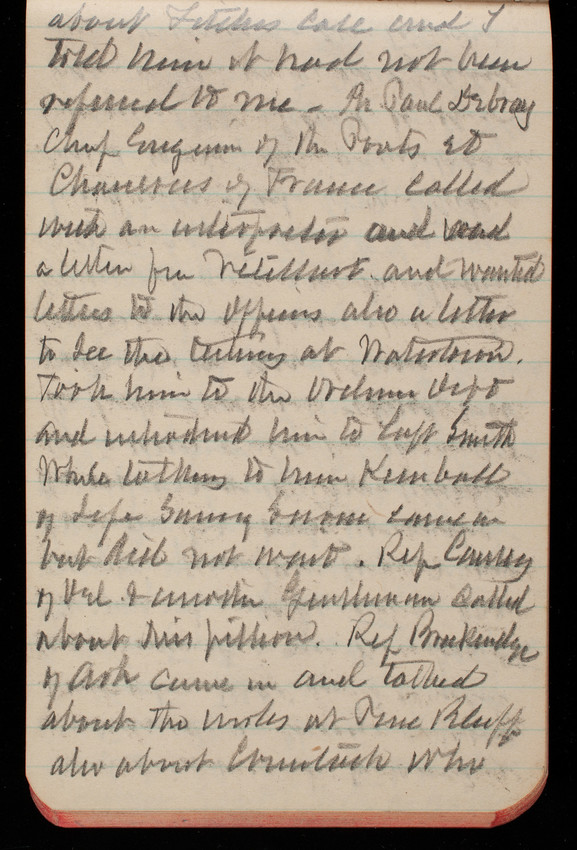 about case and I
told him it had not been
referred to me - Mr Paul Debray
Chief Engineer of the Ponts et
Chaussees of France called
with an interpreter and read
a letter from and wanted
letters to the officers also a letter
to see the testing at Watertown.
Took him to the Ordnance Dept
and introduced him to Capt Smith
While talking to him Kimball
of Life Saving Service came in
but did not wait. Rep Causey
of Del & another Gentleman called
about this petition. Rep Breckenridge
of Ark came in and talked
about the works at Pine Bluff
also about Comstock who